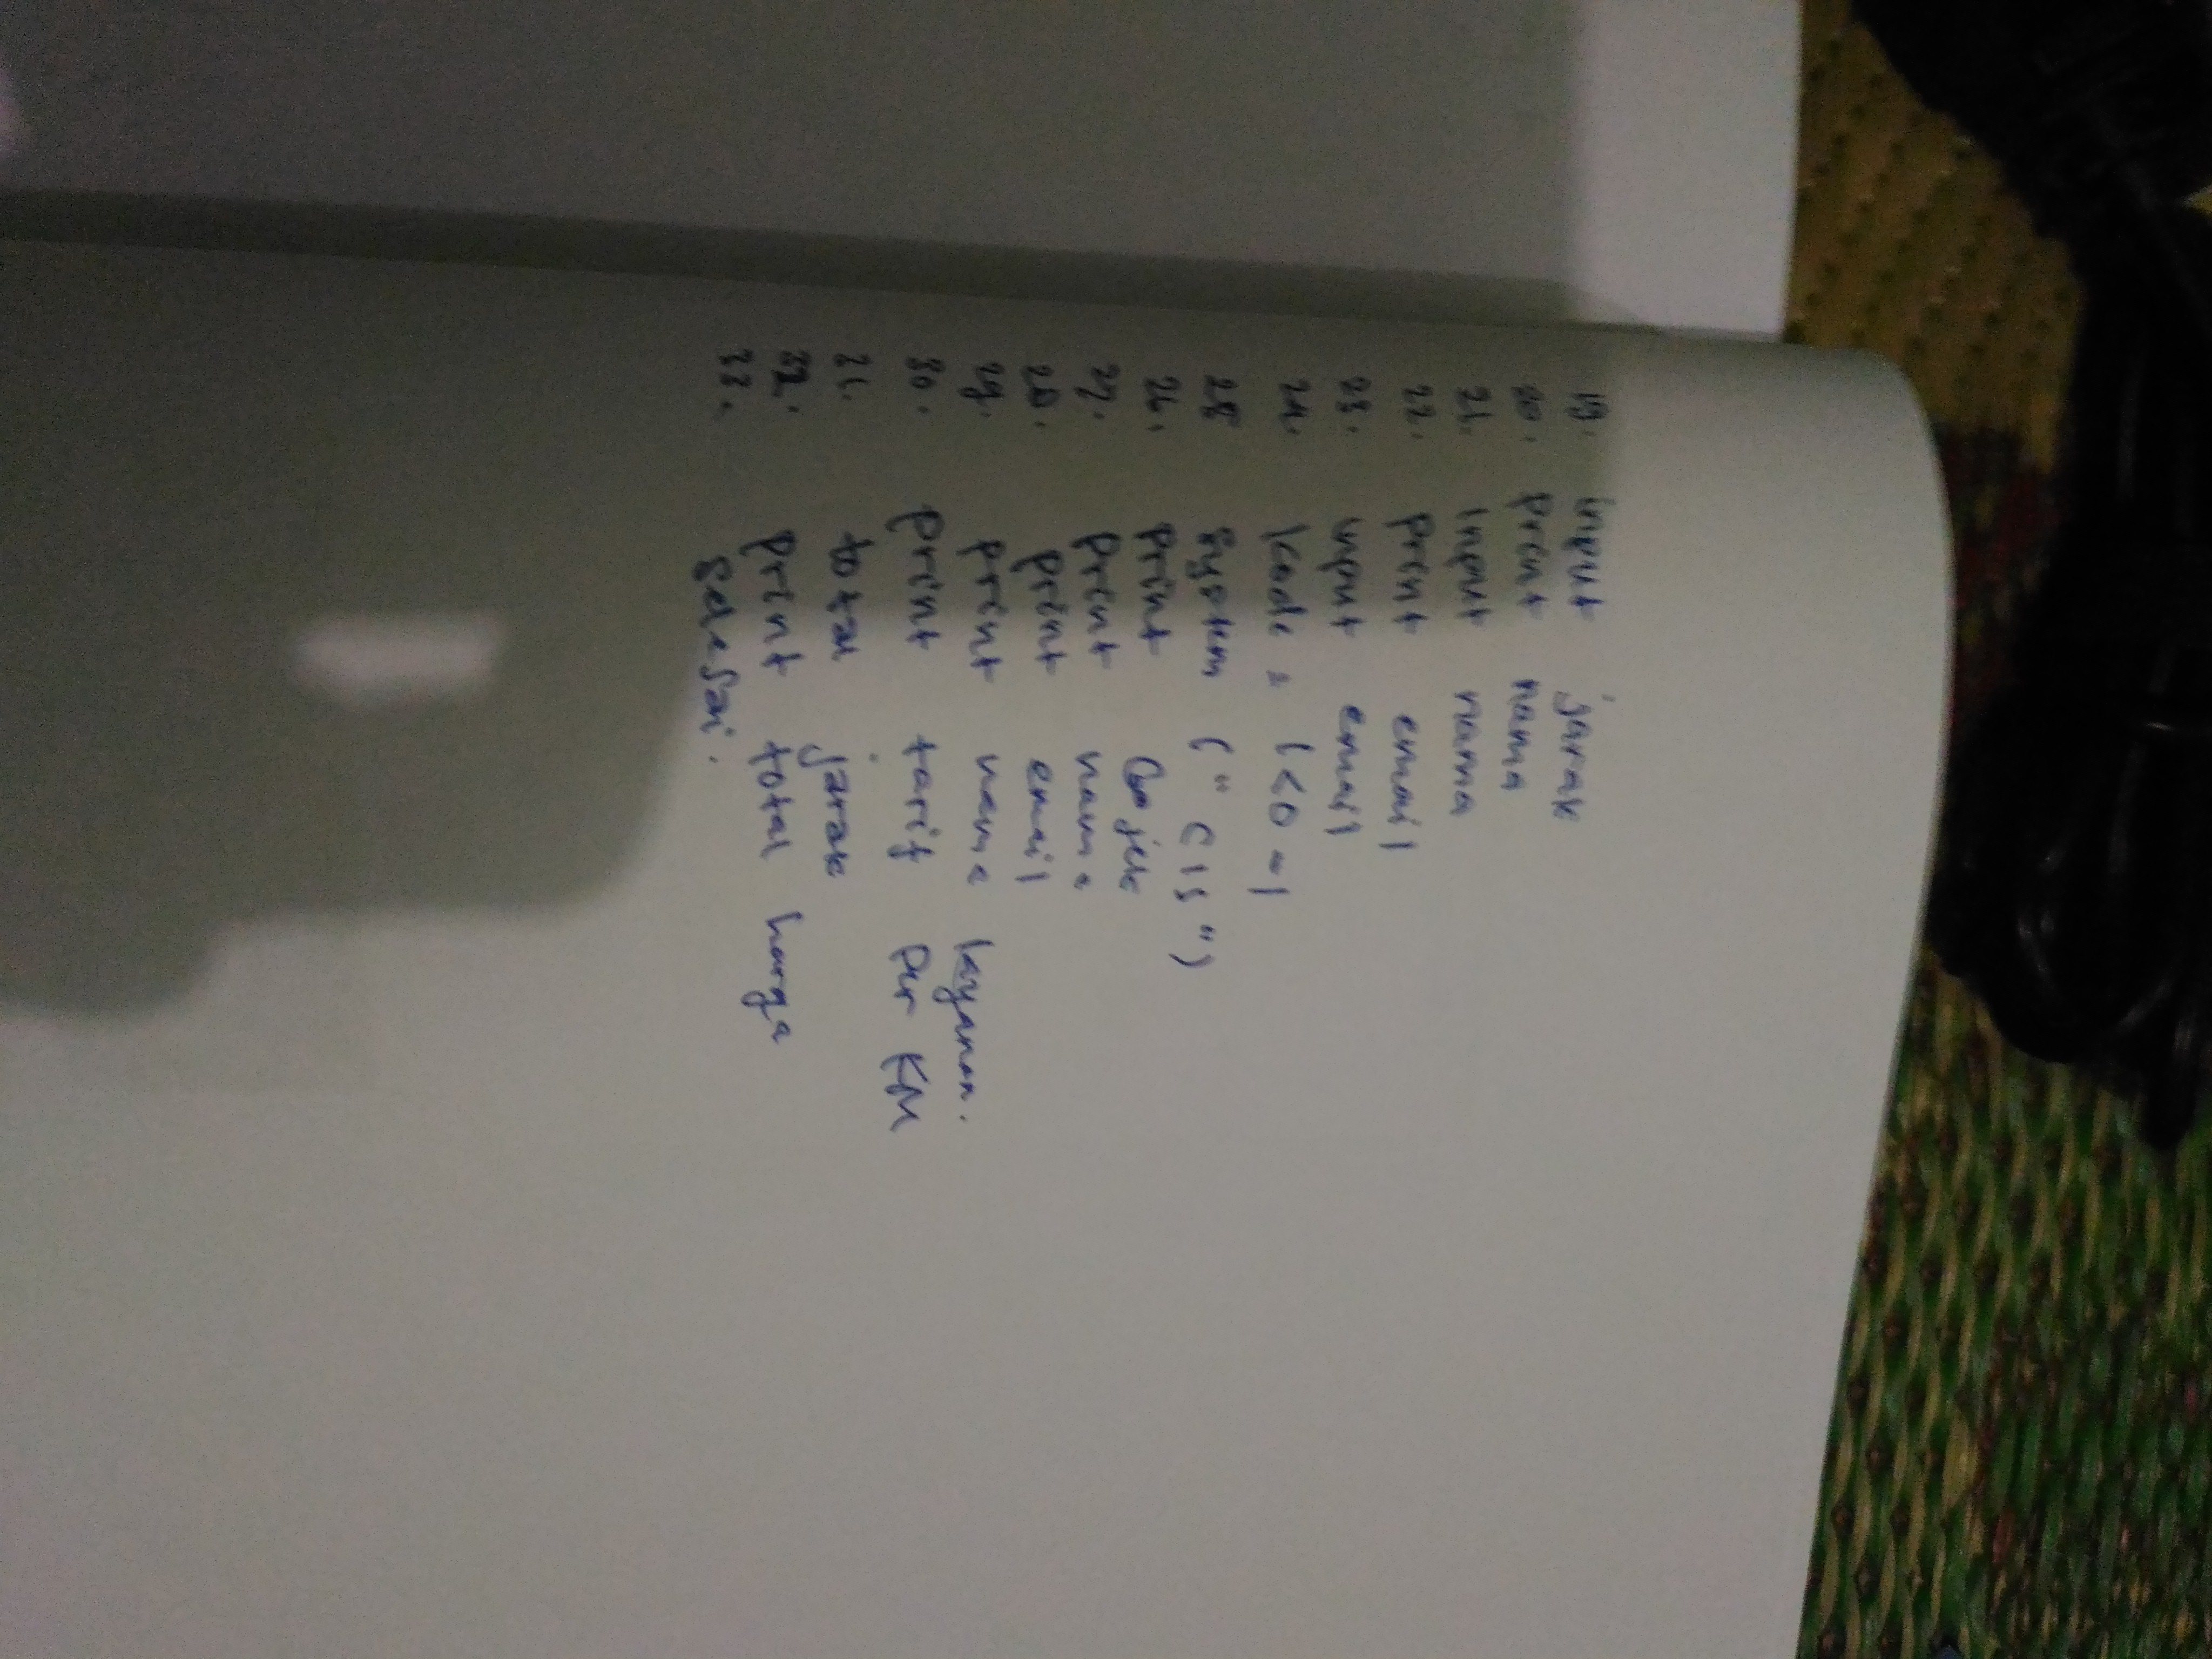 19. input jarak
20. print nama
21. input nama
22. print email
23. input email
24. kode = 1<0-1
25 system ("cls")
26. print Gojek
27. print nama
28. print email
29. print nama layanan.
30. print tarif per KM
31. total jarak
32. print total harga
33. selesai.